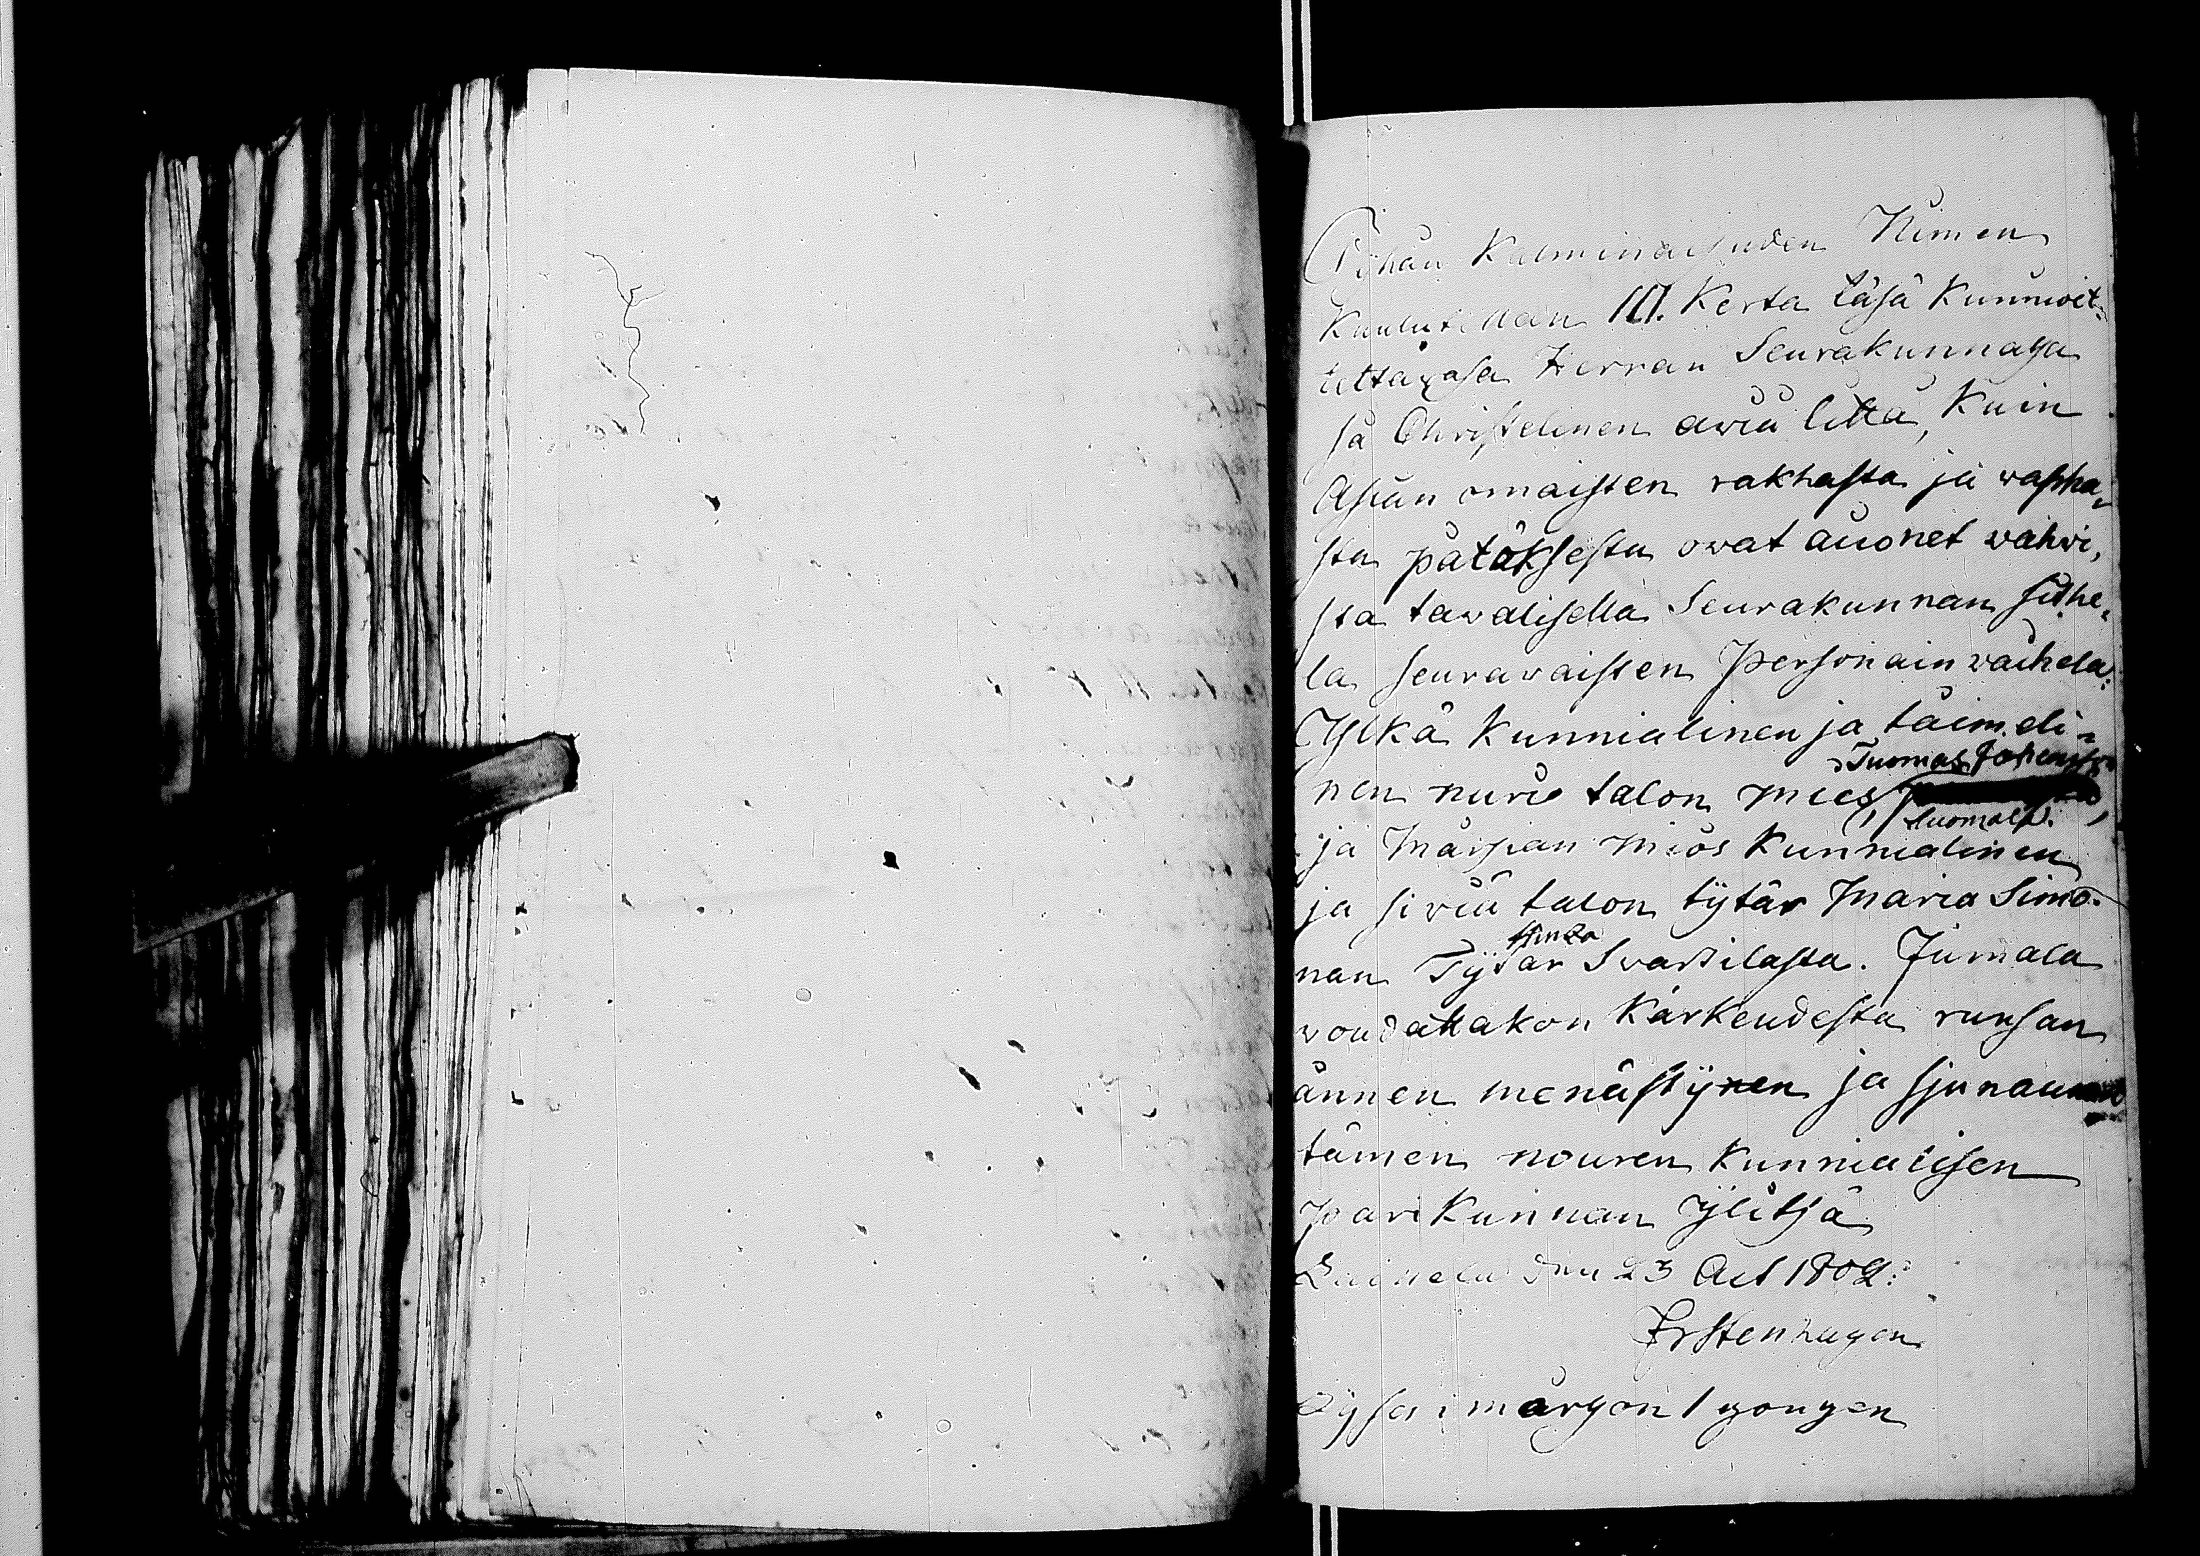 Pÿhän Kålminaisuden Nimen
Kuulutellan III. Kerta täsä Kunnioit-
tettavasa Herran Seurakunnasa
sä Christelinen aviu littä, Kuin
Asian omaisten rakhasta ja vasha-
sta pätöksestä ovat aiionet vahvi,
sta tavalisella Seurakunnan sidhe,
la seuravaisten Personain vaihela:
Ylkä Kunnialinen ja täimeli-
Tuomas Johansson
nen nuri talon mies
Tuomola.
ja Morsian miös Kunnialinen
ja siviü talon tÿtär Maria Simo-
nan Tÿtär Svartilasta. Jumala
voudattakon Kärkeudesta runsan
ännen menästÿxen ja sjunauxen
tämen nouren Kunnialisen
pariKunnan ÿlitsä
den 23 Oct 1802:
Erstenhagen
Lÿses i morgon 1 gongen